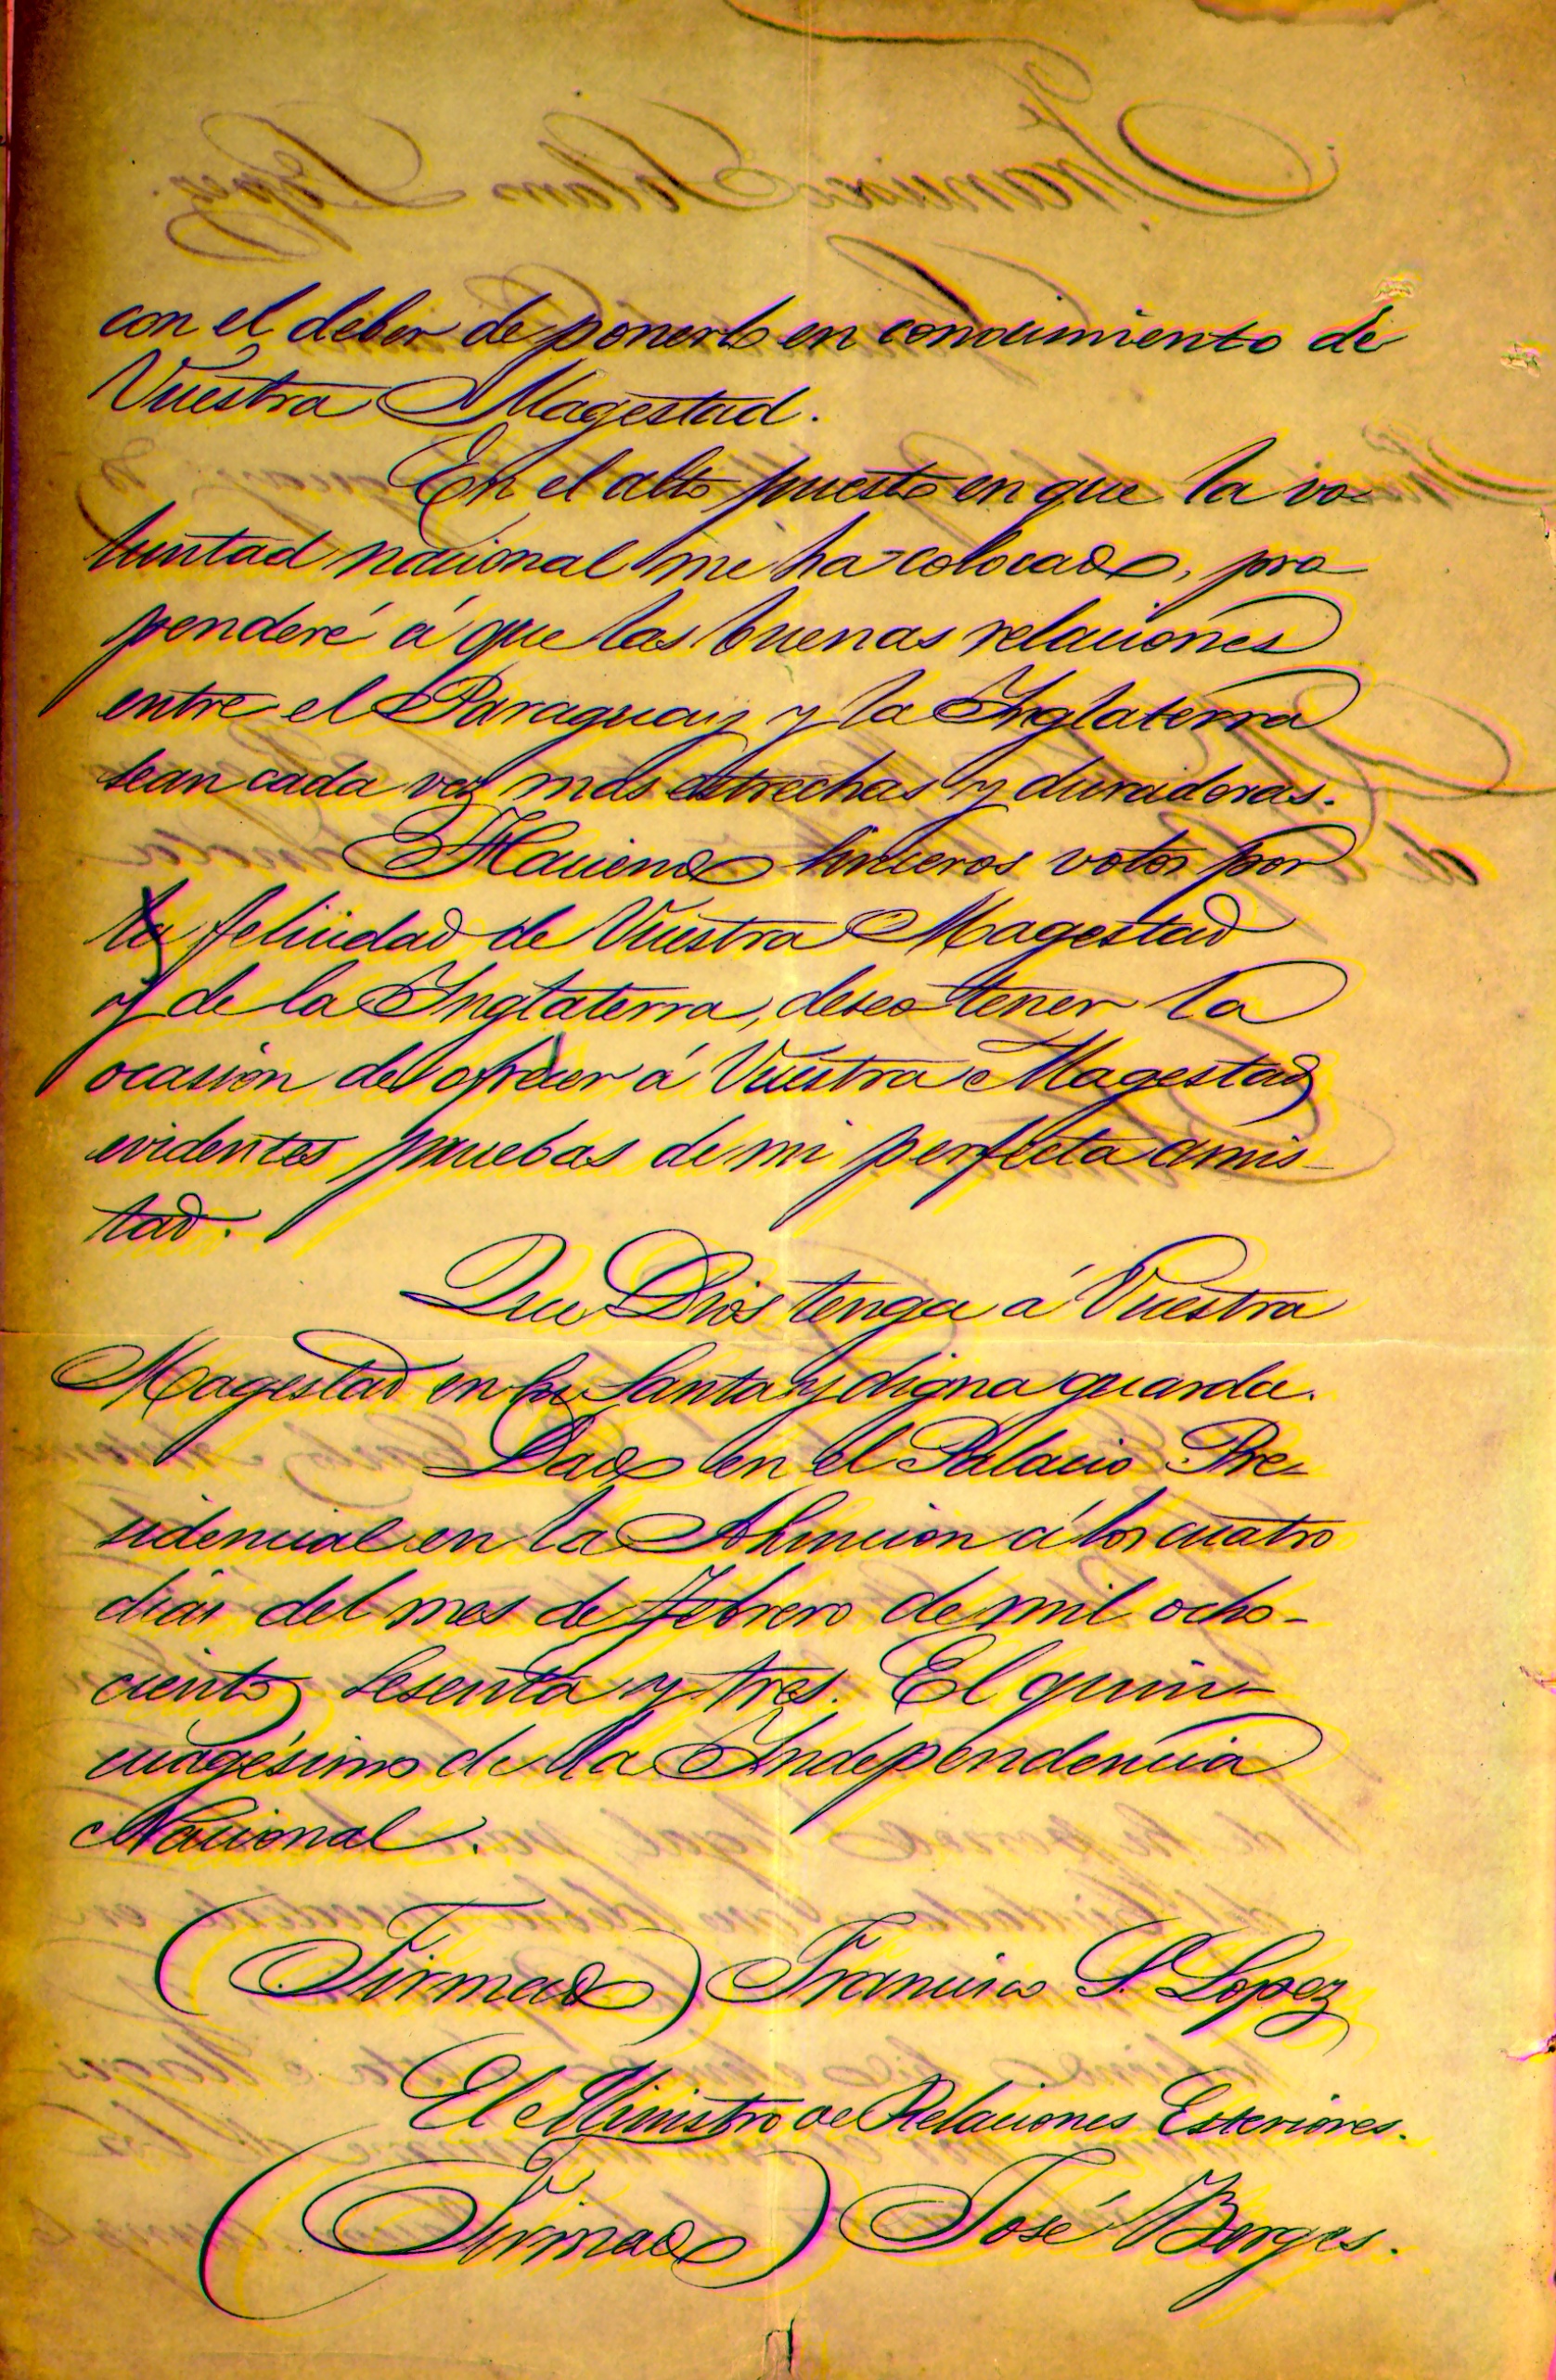 con el deber de ponerlo en conocimiento de
Vuestra Magestad.
En el alto puesto en que la vo-
luntad nacional me ha colocado, pro
penderé á que las buenas relaciones
entre el Paraguay y la Inglaterra
sean cada vez mas estrechas y duraderas.
Haciendo sinceros votos por
la felicidad de Vuestra Magestad
y de la Inglaterra, deseo tener la
ocasion de ofrecer á Vuestra Magestad
evidentes pruebas de mi perfecta amis-
tad.
Que Dios tenga á Vuestra
Magestad en su Santa y digna guarda.
Dado en el Palacio Pre-
sidencial en la Asuncion á los cuatro
dias del mes de Febrero de mil ocho-
cientos sesenta y tres. El quin-
cuagésimo de la Independencia
Nacional.
(Firmado) Francisco S. Lopez
El Ministro de Relaciones Esteriores.
(Firmado) José Berges.